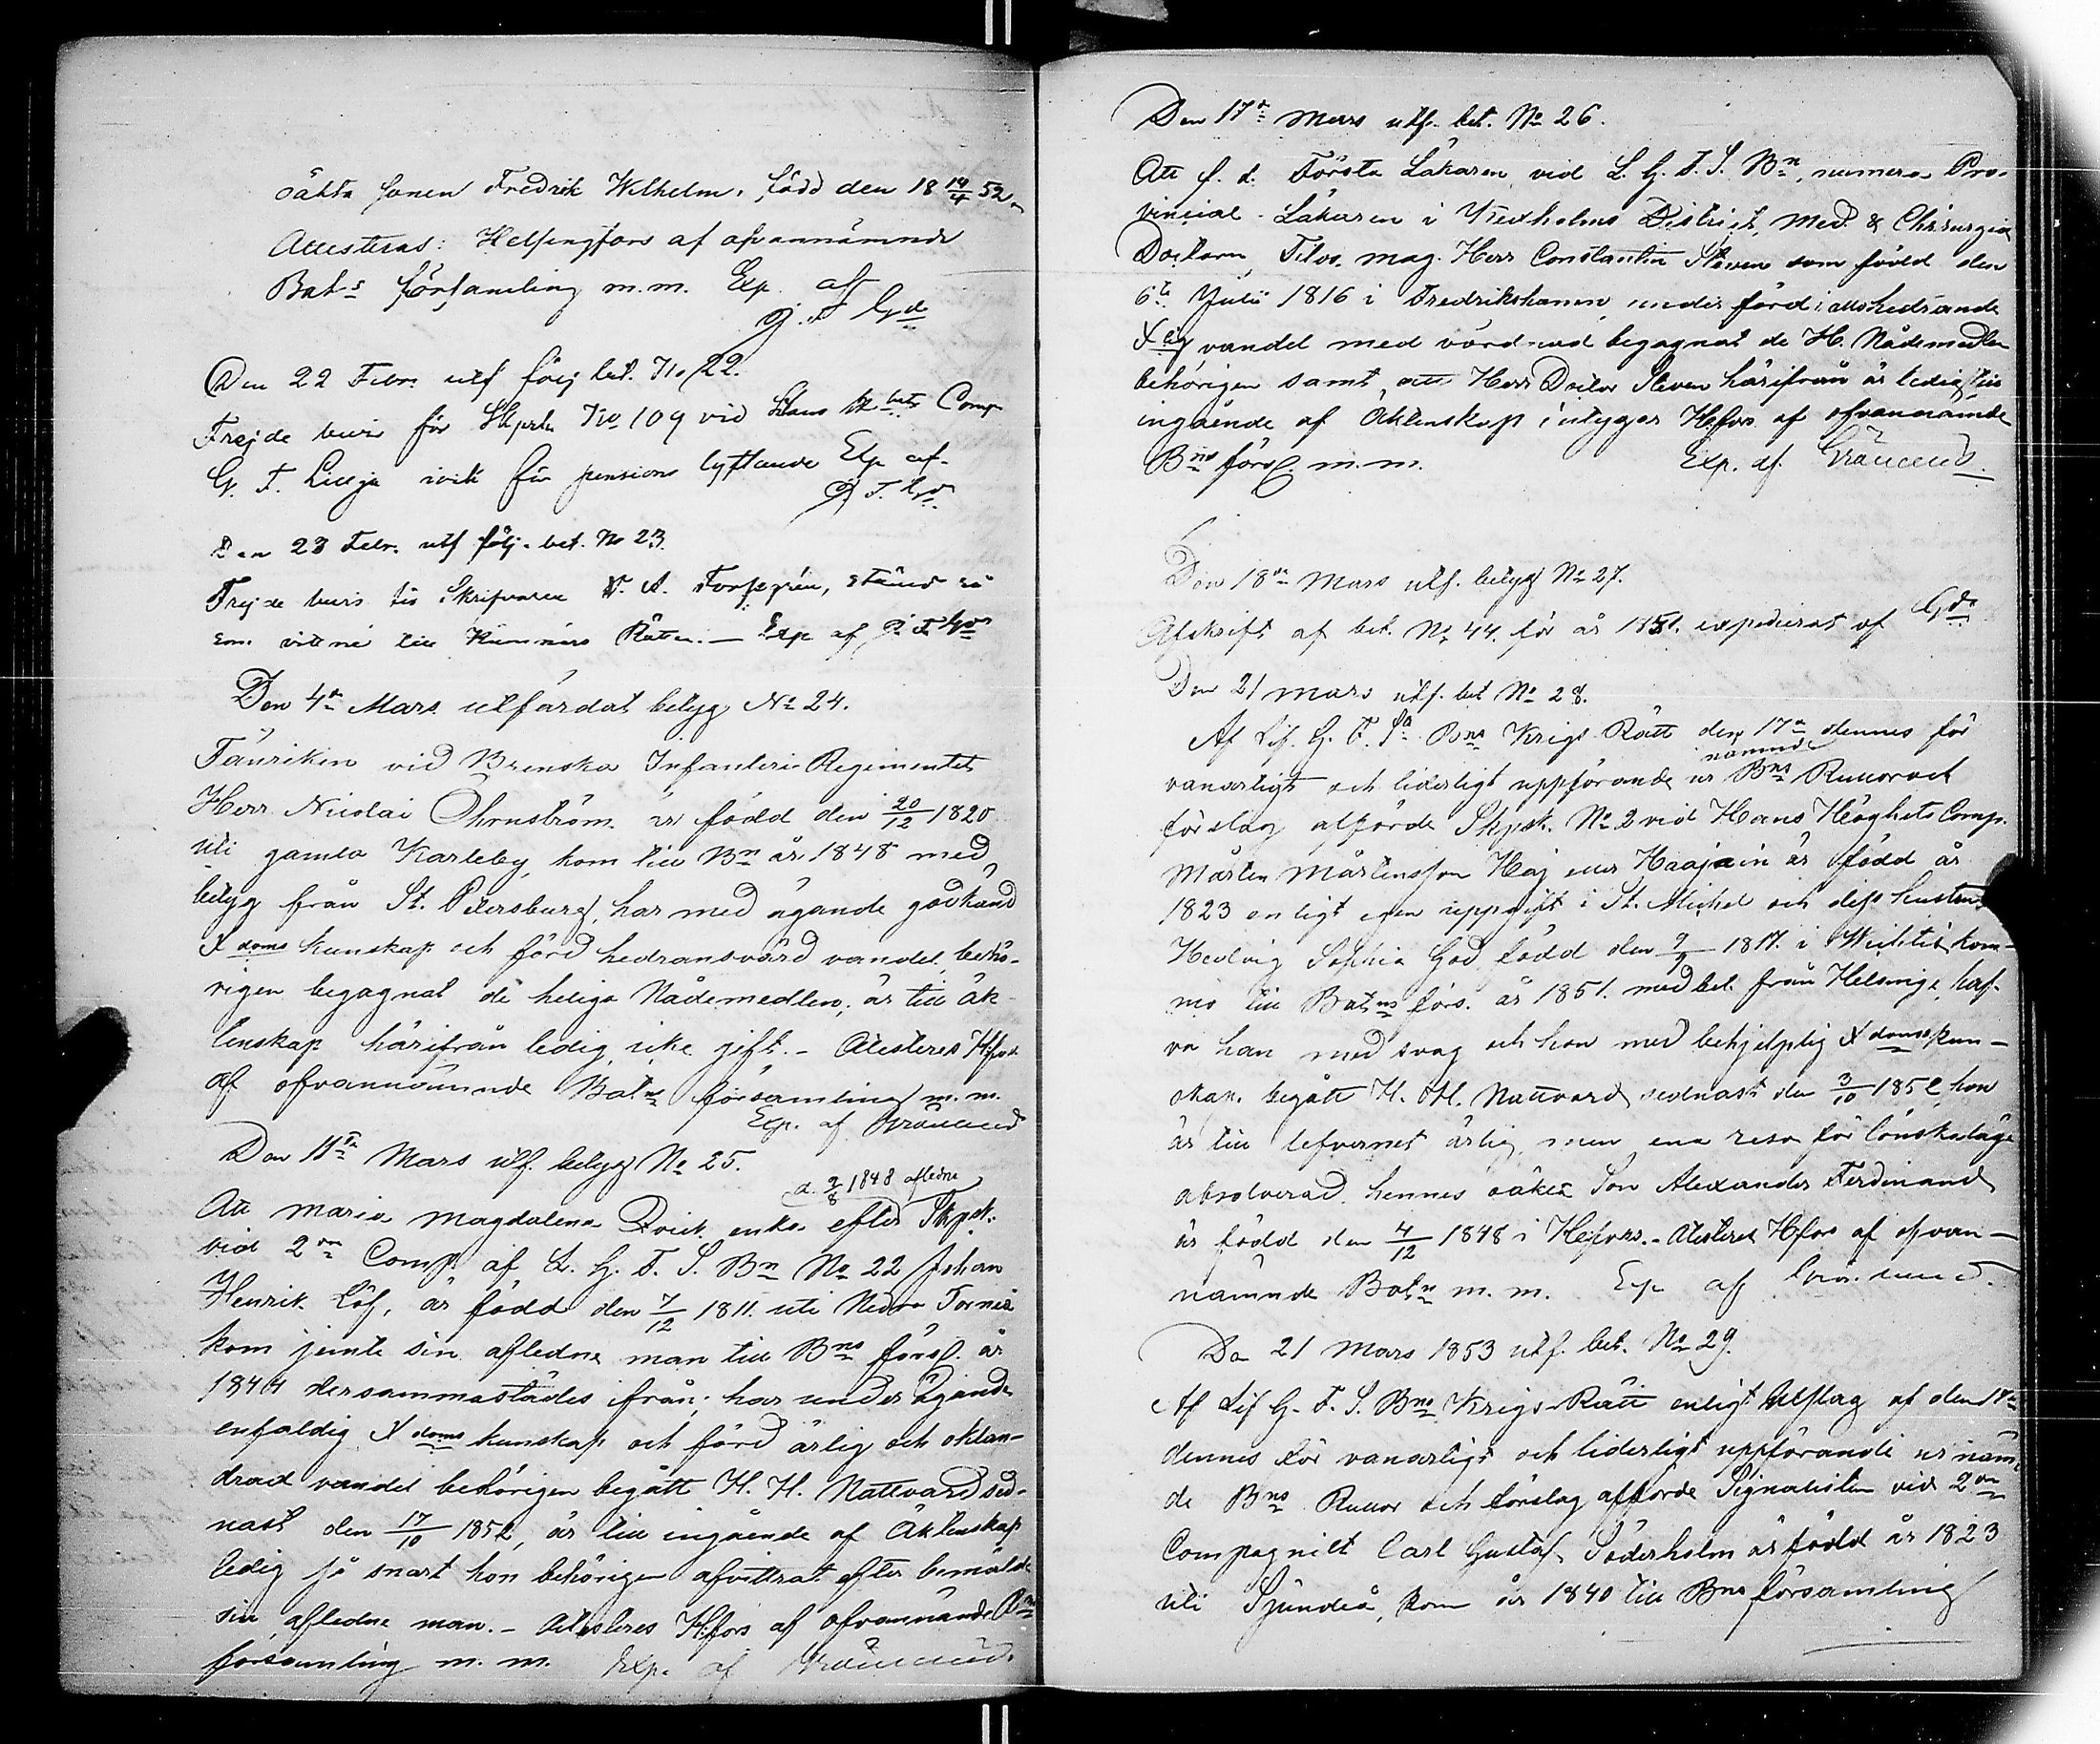 oäkta sonen Fredrik Wilhelm, född den 18 14/4 52.
Attesteras: Helsingfors af ofvannämnde
Bat:s församling m.m. Exp. af
G. F. Gd
Den 22 Febr. utf följ bet. No 22.
Frejde bevis för Skpsk No 109 vid Comp
G. F. Lilja för pensions lyftande Exp af
G. F. Gd
Den 23 Febr. utf följ. bet. No 23.
Frejde bevis till Skrifvaren F. A. såsom
vittne till Kämnärs Rätten. — Exp af G. F. Gd
Den 4de Mars utfärdat betyg No 24.
Fänriken vid Brenska Infanteri Regimentet
Herr Nicolai Öhrnström är född den 20/12 1820
uti gamla Karleby, kom till Bn år 1848 med
betyg från St. Petersburg, har med ägande godkänd
Xdoms kunskap och förd hedransvärd vandel behö-
rigen begagnat de heliga Nådemedlen; är till äk-
tenskap härifrån ledig, icke gift. – Attesteras Hfors
af ofvannämnde Batns församling m.m.
Exp. af Grönlund
Den 11te Mars utf. betyg No 25.
d. 2/8 1848 aflidne
Att Maria Magdalena Qvick enka efter Skpsk.
vid 2dra Comp. af L. G. F. S. Bn No 22 Johan
Henrik Löf, är född den 7/12 1811. uti Nedra Torneå
kom jemte sin aflidne man till Bns förs. år
1841 dersammastädes ifrån; har under ägande
enfaldig Xdoms kunskap och förd ärlig och oklan-
drad vandel behörigen begått H. H. Nattvard sed-
nast den 17/10 1852, är till ingående af Äktenskap
ledig så snart hon behörigen afvittrat efter bemälde
sin aflidne man. – Attesteras Hfors af ofvannämnde Bns
församling m. m. Exp. af Grönlund.
Den 17de Mars utf. bet. No 26.
Att f. d. Första Läkaren vid L. G. F. S. Bn, numera Pro-
vincial-Läkaren i Kexholms District, Med. & Chirurgiæ
Doctorn, Filos. Mag. Herr Constantin Steven som född den
6te Julii 1816 i Fredrikshamn, under förd i allo hedrande
Xlig vandel med vördnad begagnat de H. Nådemedlen
behörigen samt att Herr Doctor Steven härifrån är ledig till
ingående af Äktenskap intygar Hfors af ofvannämnde
Bns förs. m.m. Exp. af Grönlund.
Den 18de Mars utf. betyg No 27.
Afskrift af bet. No 44. för år 1851. expedierat af Gd
Den 21 Mars utf. bet No 28.
Af Lif. G. F. S. Bns Krigs Rätt den 17de dennes för
nämnde
vanartigt och liderligt uppförande ur Bns Rullor och
förslag afförde Skpsk. No 2 vid Hans Höghets Comp.
Mårten Mårtensson Haj eller Haajain är född år
1823 enligt egen uppgift i St. Michel och dess hustru
Hedvig Sophia God född den 9/ 1817. i Wichtis, kom-
mo till Batns förs. år 1851. med bet. från Helsinge, haf-
va han med svag och hon med behjelplig Xdomskun-
skap. begått H. H. Nattvard sednast den 3/10 1852, hon
är till lefvernet ärlig, men ena resa för lönskaläge
absolverad. hennes oäkta Son Alexander Ferdinand
är född den 4/12 1848 i Hfors. – Attesteras Hfors af ofvan-
nämnde Batn m. m. Exp af Grönlund.
Den 21 Mars 1853 utf. bet. No 29.
Af Lif G. F. S. Bns Krigs-Rätt enligt Utslag af den 17de
dennes för vanartigt och liderligt uppförande ur nämn-
de Bns Rullor och förslag afförde Signalisten vid 2dra
Compagniet Carl Gustaf Söderholm är född år 1823
uti Sjundeå, kom år 1840 till Bns församling